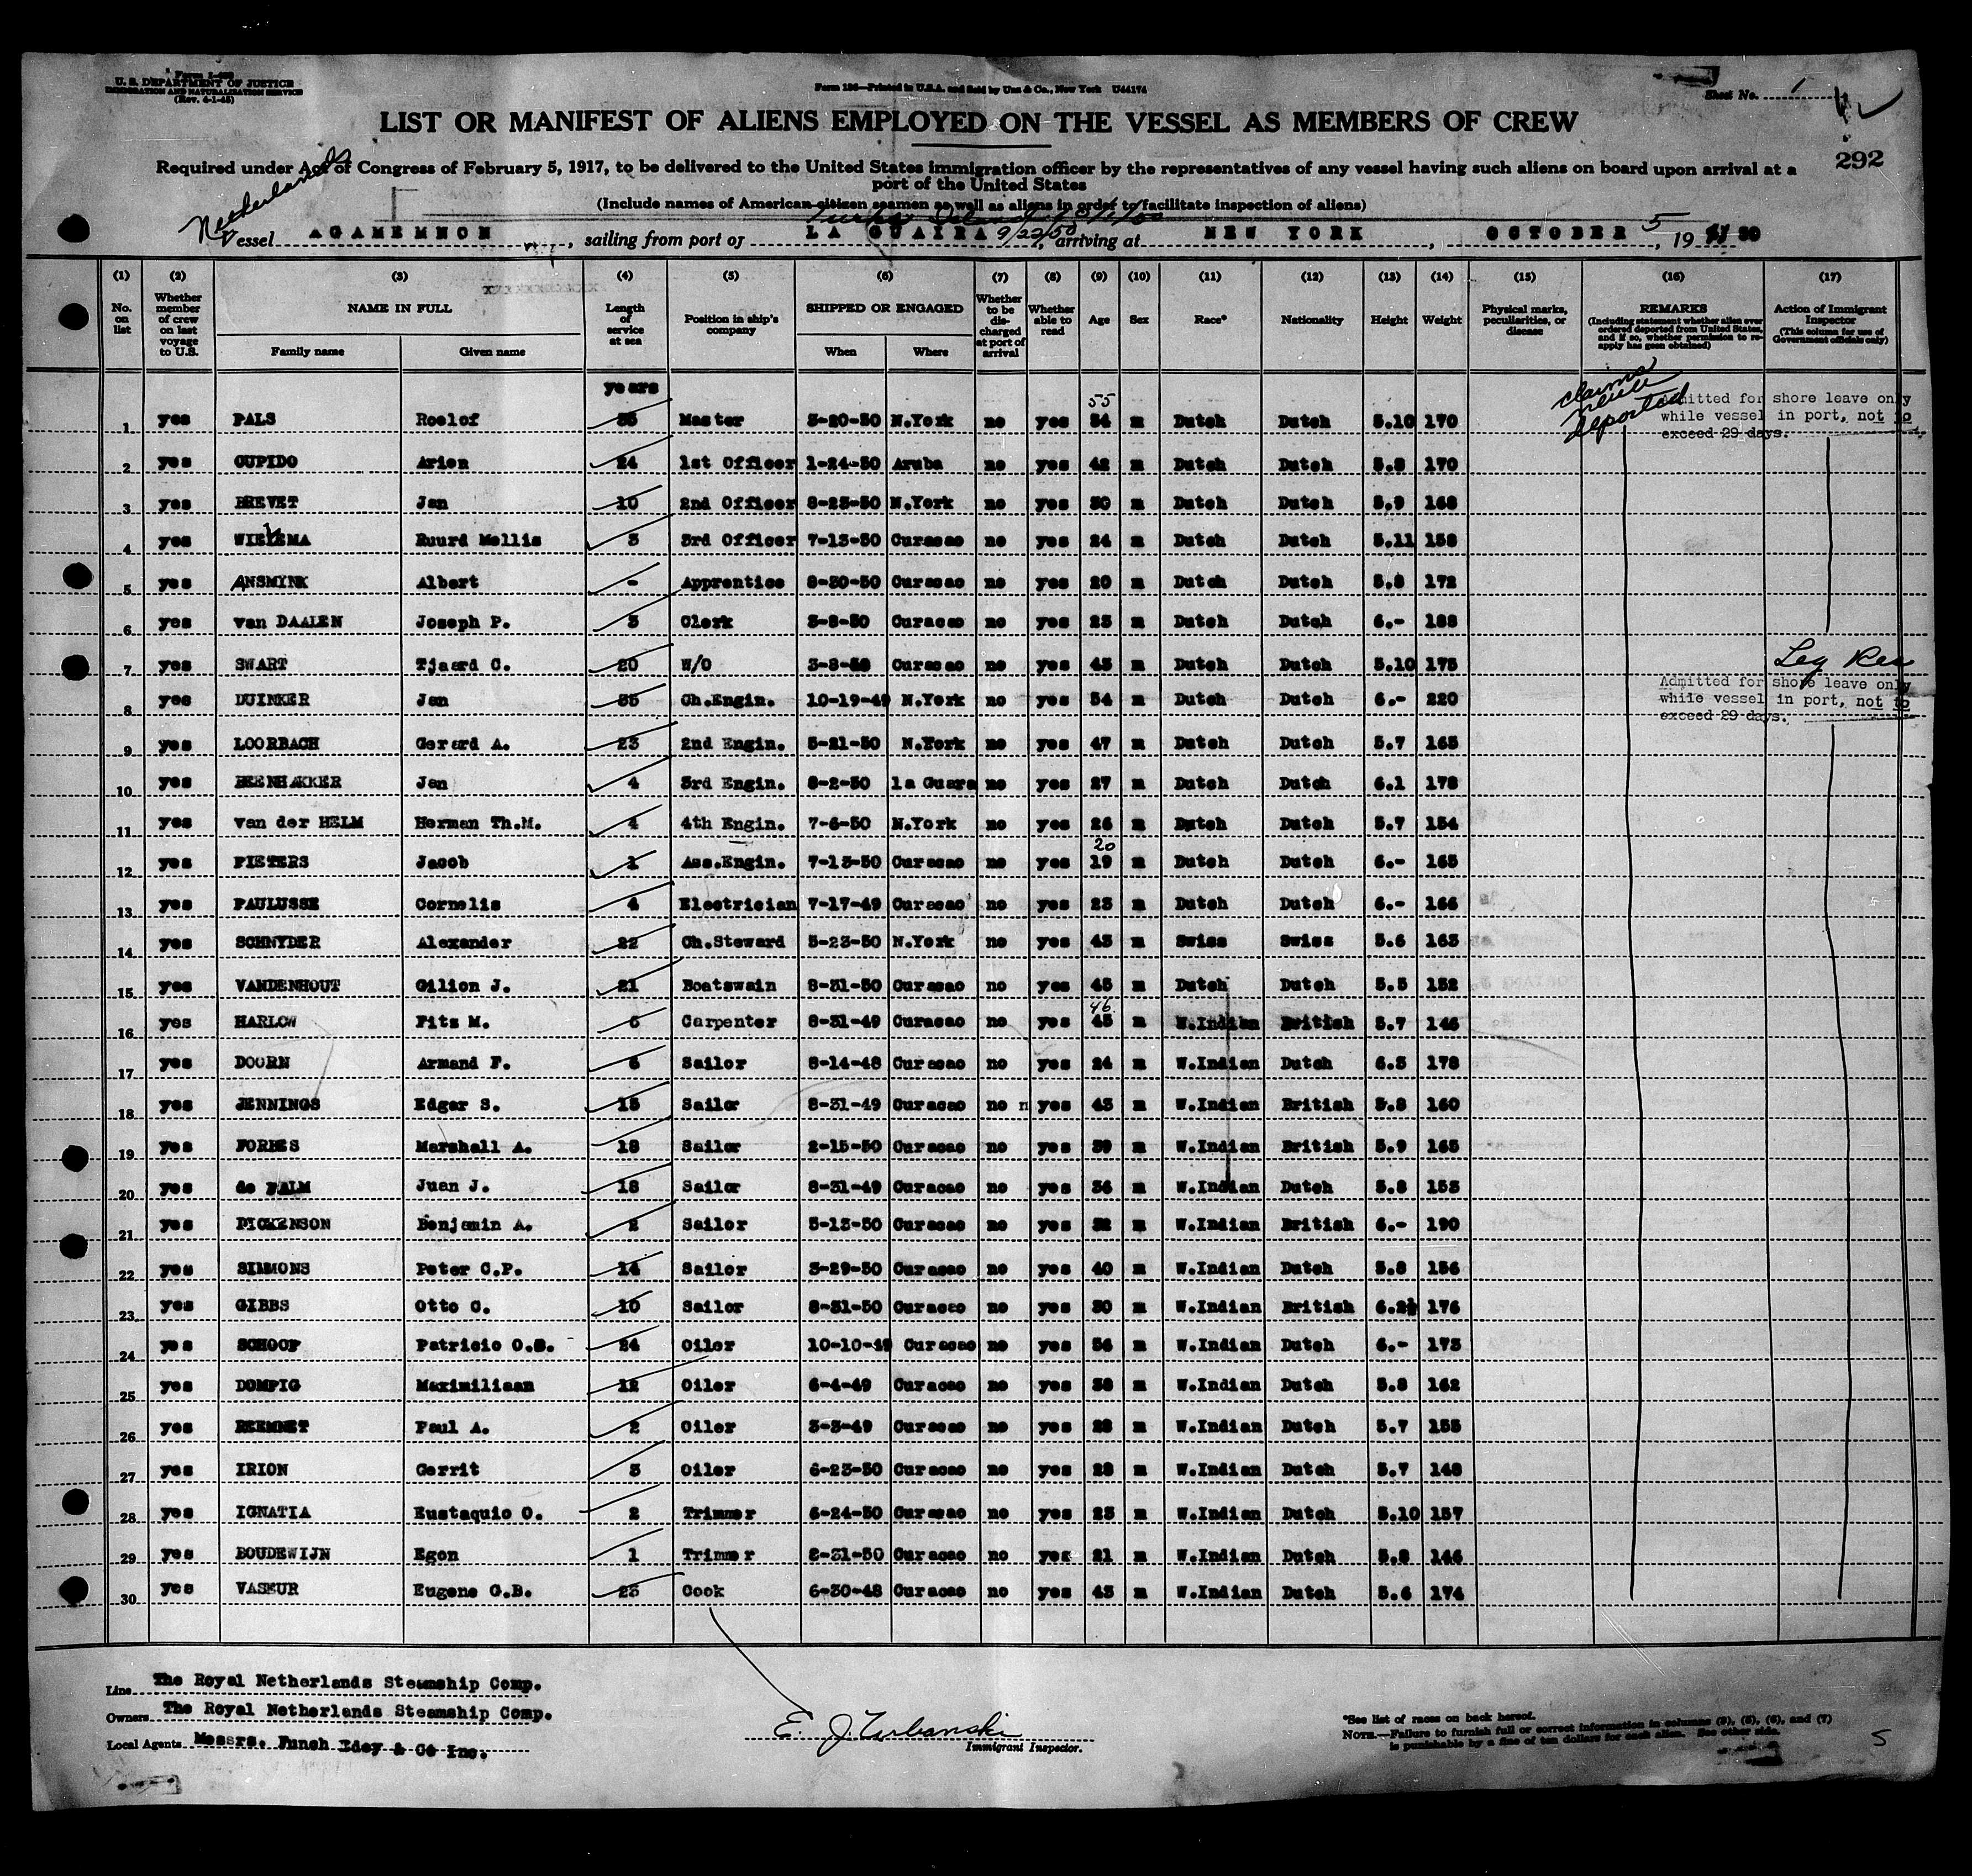 Form I-489
U. S. DEPARTMENT OF JUSTICE
IMMIGRATION AND NATURALIZATION SERVICE
(Rev. 4-1-45)
Form 136—Printed in U.S.A. and Sold by Unz & Co., New York U44174
Sheet No. 1
LIST OR MANIFEST OF ALIENS EMPLOYED ON THE VESSEL AS MEMBERS OF CREW
292
Required under Act of Congress of February 5, 1917, to be delivered to the United States immigration officer by the representatives of any vessel having such aliens on board upon arrival at a
port of the United States
(Include names of American citizen seamen as well as aliens in order to facilitate inspection of aliens)
Netherlands
Vessel AGAMEMNON, sailing from port of LA GUAIRA 9/22/50, arriving at NEW YORK, OCTOBER 5, 19 50
(1) (2) (3) (4) (5) (6) (7) (8) (9) (10) (11) (12) (13) (14) (15) (16) (17)
No. on list Whether member of crew on last voyage to U.S. NAME IN FULL Family name Given name Length of service at sea Position in ship's company SHIPPED OR ENGAGED When Where Whether to be discharged at port of arrival Whether able to read Age Sex Race* Nationality Height Weight Physical marks, peculiarities, or disease REMARKS (Including statement whether alien ever ordered deported from United States, and if so, whether permission to reapply has been obtained) Action of Immigrant Inspector (This column for use of Government officials only)
years
claims never deported
Admitted for shore leave only
while vessel in port, not to
exceed 29 days.
1 yes PALS Roelof 35 Master 3-20-50 N.York no yes 54 55 m Dutch Dutch 5.10 170
2 yes CUPIDO Arien 24 1st Officer 1-24-50 Aruba no yes 42 m Dutch Dutch 5.8 170
3 yes BREVET Jan 10 2nd Officer 8-23-50 N.York no yes 30 m Dutch Dutch 5.9 168
4 yes WIELEMA Ruurd Mellis 3 3rd Officer 7-13-50 Curacao no yes 24 m Dutch Dutch 5.11 158
5 yes ANSMYNK Albert - Apprentice 8-30-50 Curacao no yes 20 m Dutch Dutch 5.8 172
6 yes van DAALEN Joseph P. 3 Clerk 3-8-50 Curacao no yes 23 m Dutch Dutch 6.- 188
7 yes SWART Tjaard C. 20 W/O 3-8-50 Curacao no yes 43 m Dutch Dutch 5.10 175 Leg Res
Admitted for shore leave only
while vessel in port, not to
exceed 29 days.
8 yes DUINKER Jan 35 Ch.Engin. 10-19-49 N.York no yes 54 m Dutch Dutch 6.- 220
9 yes LOORBACH Gerard A. 23 2nd Engin. 5-21-50 N.York no yes 47 m Dutch Dutch 5.7 165
10 yes BEENHAKKER Jan 4 3rd Engin. 8-2-50 la Guara no yes 27 m Dutch Dutch 6.1 178
11 yes van der HELM Herman Th.M. 4 4th Engin. 7-6-50 N.York no yes 26 m Dutch Dutch 5.7 154
12 yes PIETERS Jacob 1 Ass.Engin. 7-13-50 Curacao no yes 19 20 m Dutch Dutch 6.- 165
13 yes PAULUSSE Cornelis 4 Electrician 7-17-49 Curacao no yes 23 m Dutch Dutch 6.- 166
14 yes SCHNYDER Alexander 22 Ch.Steward 5-23-50 N.York no yes 43 m Swiss Swiss 5.6 163
15 yes VANDENHOUT Gilion J. 21 Boatswain 8-31-50 Curacao no yes 45 m Dutch Dutch 5.5 152
16 yes HARLOW Fitz M. 6 Carpenter 8-31-49 Curacao no yes 45 46 m W.Indian British 5.7 146
17 yes DOORN Armand F. 6 Sailor 8-14-48 Curacao no yes 24 m W.Indian Dutch 6.3 178
18 yes JENNINGS Edgar S. 15 Sailor 8-31-49 Curacao no n yes 43 m W.Indian British 5.8 160
19 yes FORBES Marshall A. 18 Sailor 2-15-50 Curacao no yes 39 m W.Indian British 5.9 165
20 yes de PALM Juan J. 18 Sailor 8-31-49 Curacao no yes 36 m W.Indian Dutch 5.8 153
21 yes DICKENSON Benjamin A. 2 Sailor 5-13-50 Curacao no yes 32 m W.Indian British 6.- 190
22 yes SIMMONS Peter C.P. 14 Sailor 3-29-50 Curacao no yes 40 m W.Indian Dutch 5.8 156
23 yes GIBBS Otto C. 10 Sailor 8-31-50 Curacao no yes 30 m W.Indian British 6.2½ 176
24 yes SCHOOP Patricio O.S. 24 Oiler 10-10-49 Curacao no yes 54 m W.Indian Dutch 6.- 173
25 yes DOMPIG Maximiliaan 12 Oiler 6-4-49 Curacao no yes 38 m W.Indian Dutch 5.8 162
26 yes BEEMNET Paul A. 2 Oiler 3-3-49 Curacao no yes 28 m W.Indian Dutch 5.7 155
27 yes IRION Gerrit 3 Oiler 6-23-50 Curacao no yes 28 m W.Indian Dutch 5.7 148
28 yes IGNATIA Eustaquio O. 2 Trimmer 6-24-50 Curacao no yes 23 m W.Indian Dutch 5.10 157
29 yes BOUDEWIJN Egon 1 Trimmer 8-31-50 Curacao no yes 21 m W.Indian Dutch 5.8 146
30 yes VASEUR Eugene G.B. 23 Cook 6-30-48 Curacao no yes 43 m W.Indian Dutch 5.6 174
Line The Royal Netherlands Steamship Comp.
Owners The Royal Netherlands Steamship Comp.
Local Agents Messrs. Funch Edey & Co Inc.
E. J. Urbanski
Immigrant Inspector.
*See list of races on back hereof.
NOTE.—Failure to furnish full or correct information in columns (3), (5), (6), and (7)
is punishable by a fine of ten dollars for each alien. See other side.
5